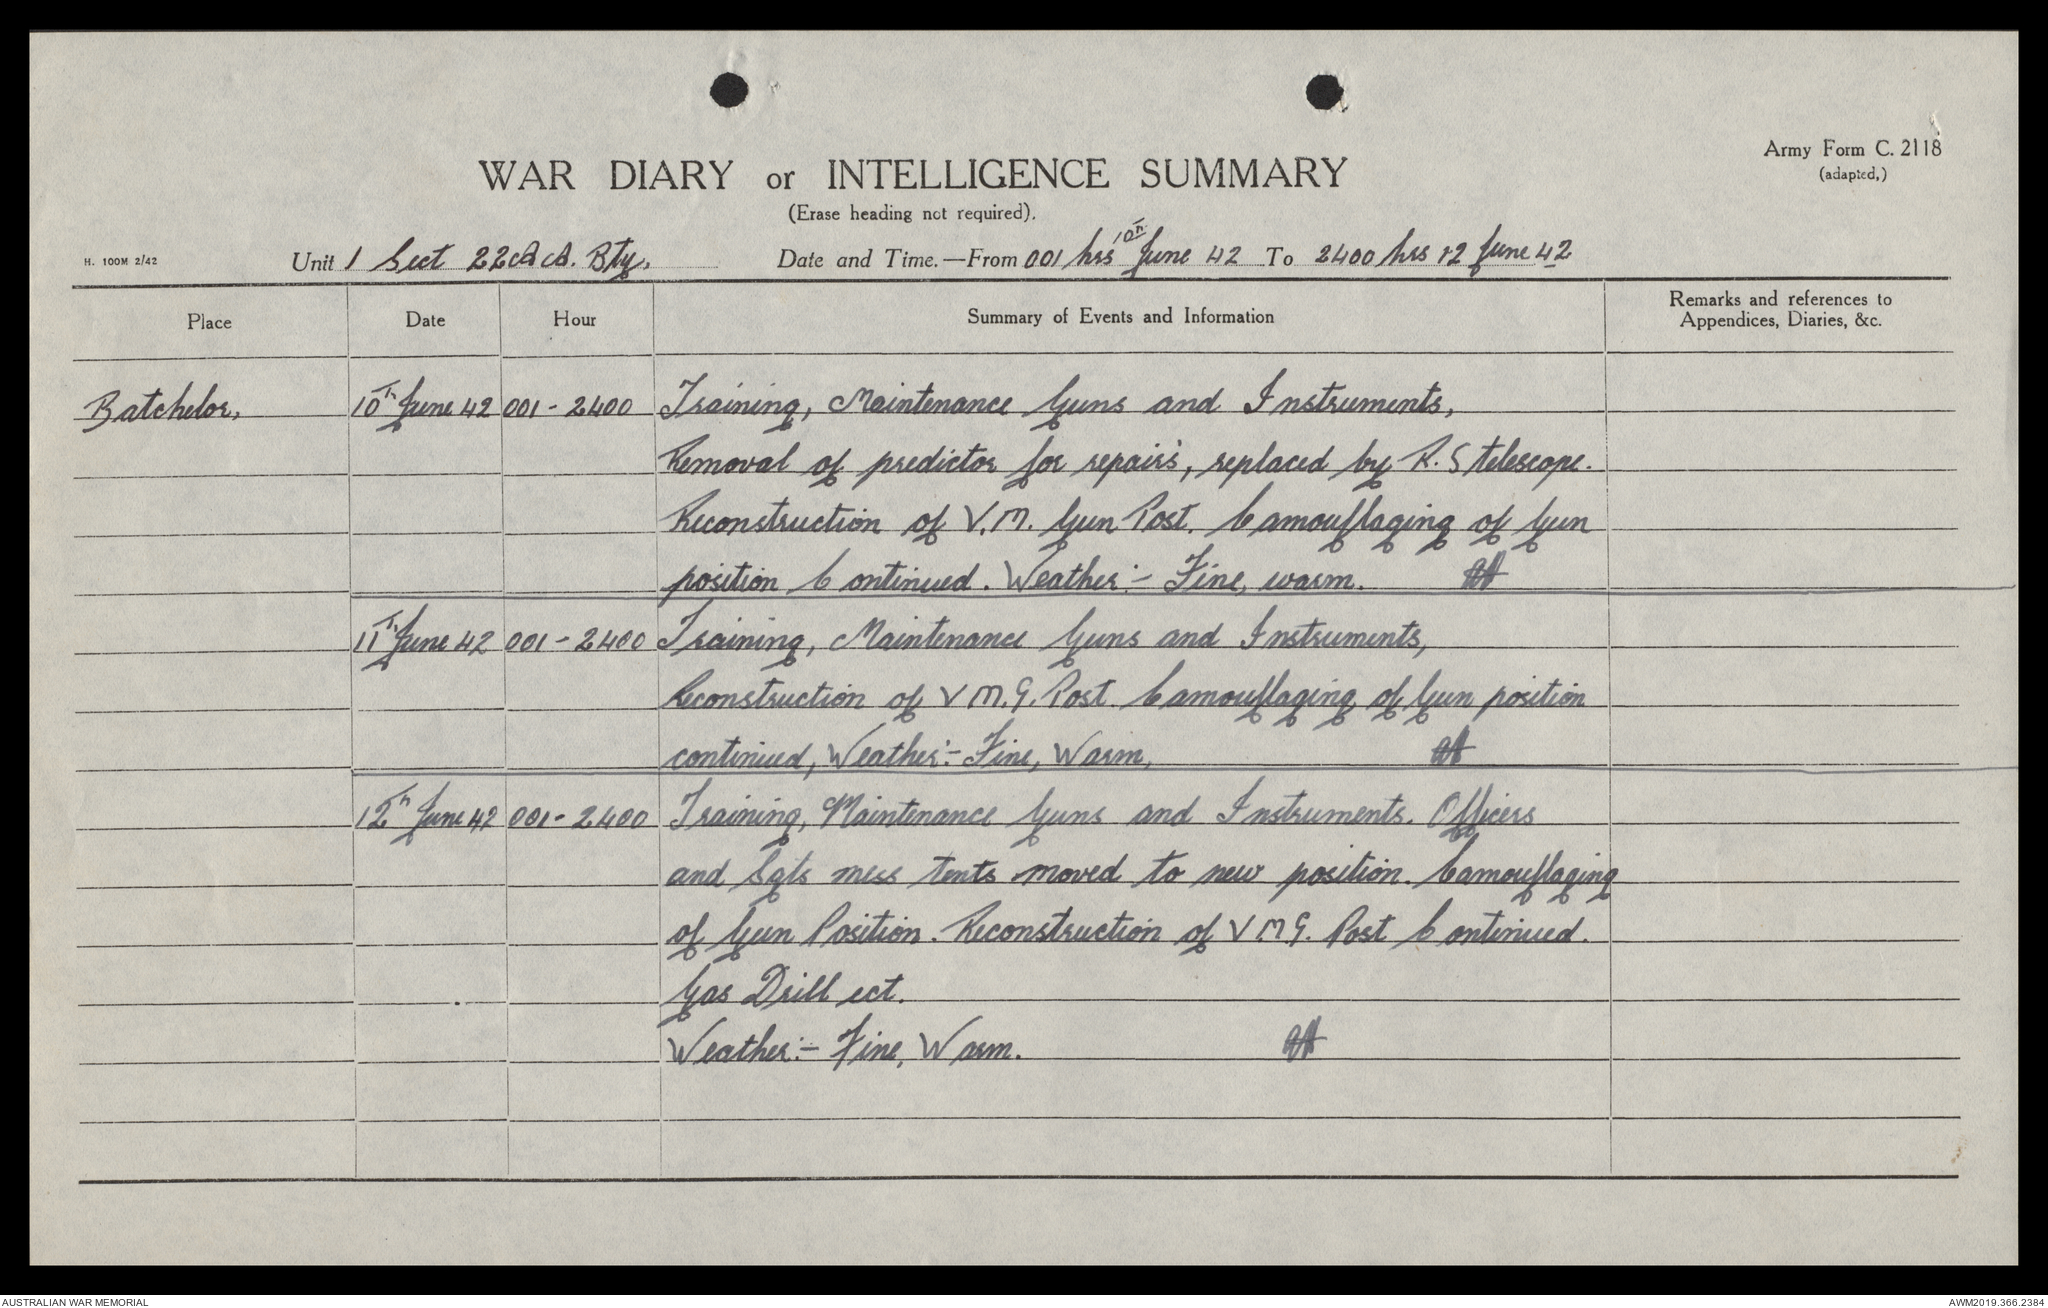 Army Form C. 2118
(adapted,)
WAR DIARY or INTELLIGENCE SUMMARY
(Erase heading not required).
H. 100M 2/42
Unit 1 Sect 22 A A. Bty. Date and Time.—From 001 hrs 10th June 42 To 2400 hrs 12 June 42
Place Date Hour Summary of Events and Information Remarks and references to
Appendices, Diaries, &c.
Batchelor, 10th June 42 001 - 2400 Training, Maintenance Guns and Instruments,
Removal of predictor for repairs, replaced by R. S telescope.
Reconstruction of V.M. Gun Post. Camouflaging of Gun
position Continued. Weather:- Fine, warm.
11th June 42 001 - 2400 Training, Maintenance Guns and Instruments,
Reconstruction of V M.G. Post. Camouflaging of Gun position
continued, Weather:- Fine, Warm,
12th June 42 001 - 2400 Training, Maintenance Guns and Instruments. Officers
and Sgts mess tents moved to new position. Camouflaging
of Gun Position. Reconstruction of V M.G. Post Continued.
Gas Drill ect.
Weather:- Fine, Warm.
AUSTRALIAN WAR MEMORIAL AWM2019.366.2384